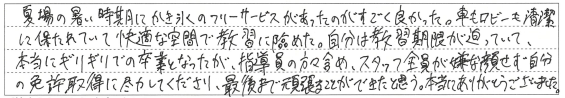 夏場の暑い時期にかき氷のフリーサービスがあったのがすごく良かった。車もロビーも清潔
に保たれていて快適な空間で教習に臨めた。自分は教習期限が迫っていて、
本当にギリギリでの卒業となったが、指導員の方々含め、スタッフ全員が嫌な顔せず自分
の免許取得に尽力してくださり、最後まで頑張ることができたと思う。本当にありがとうございました。